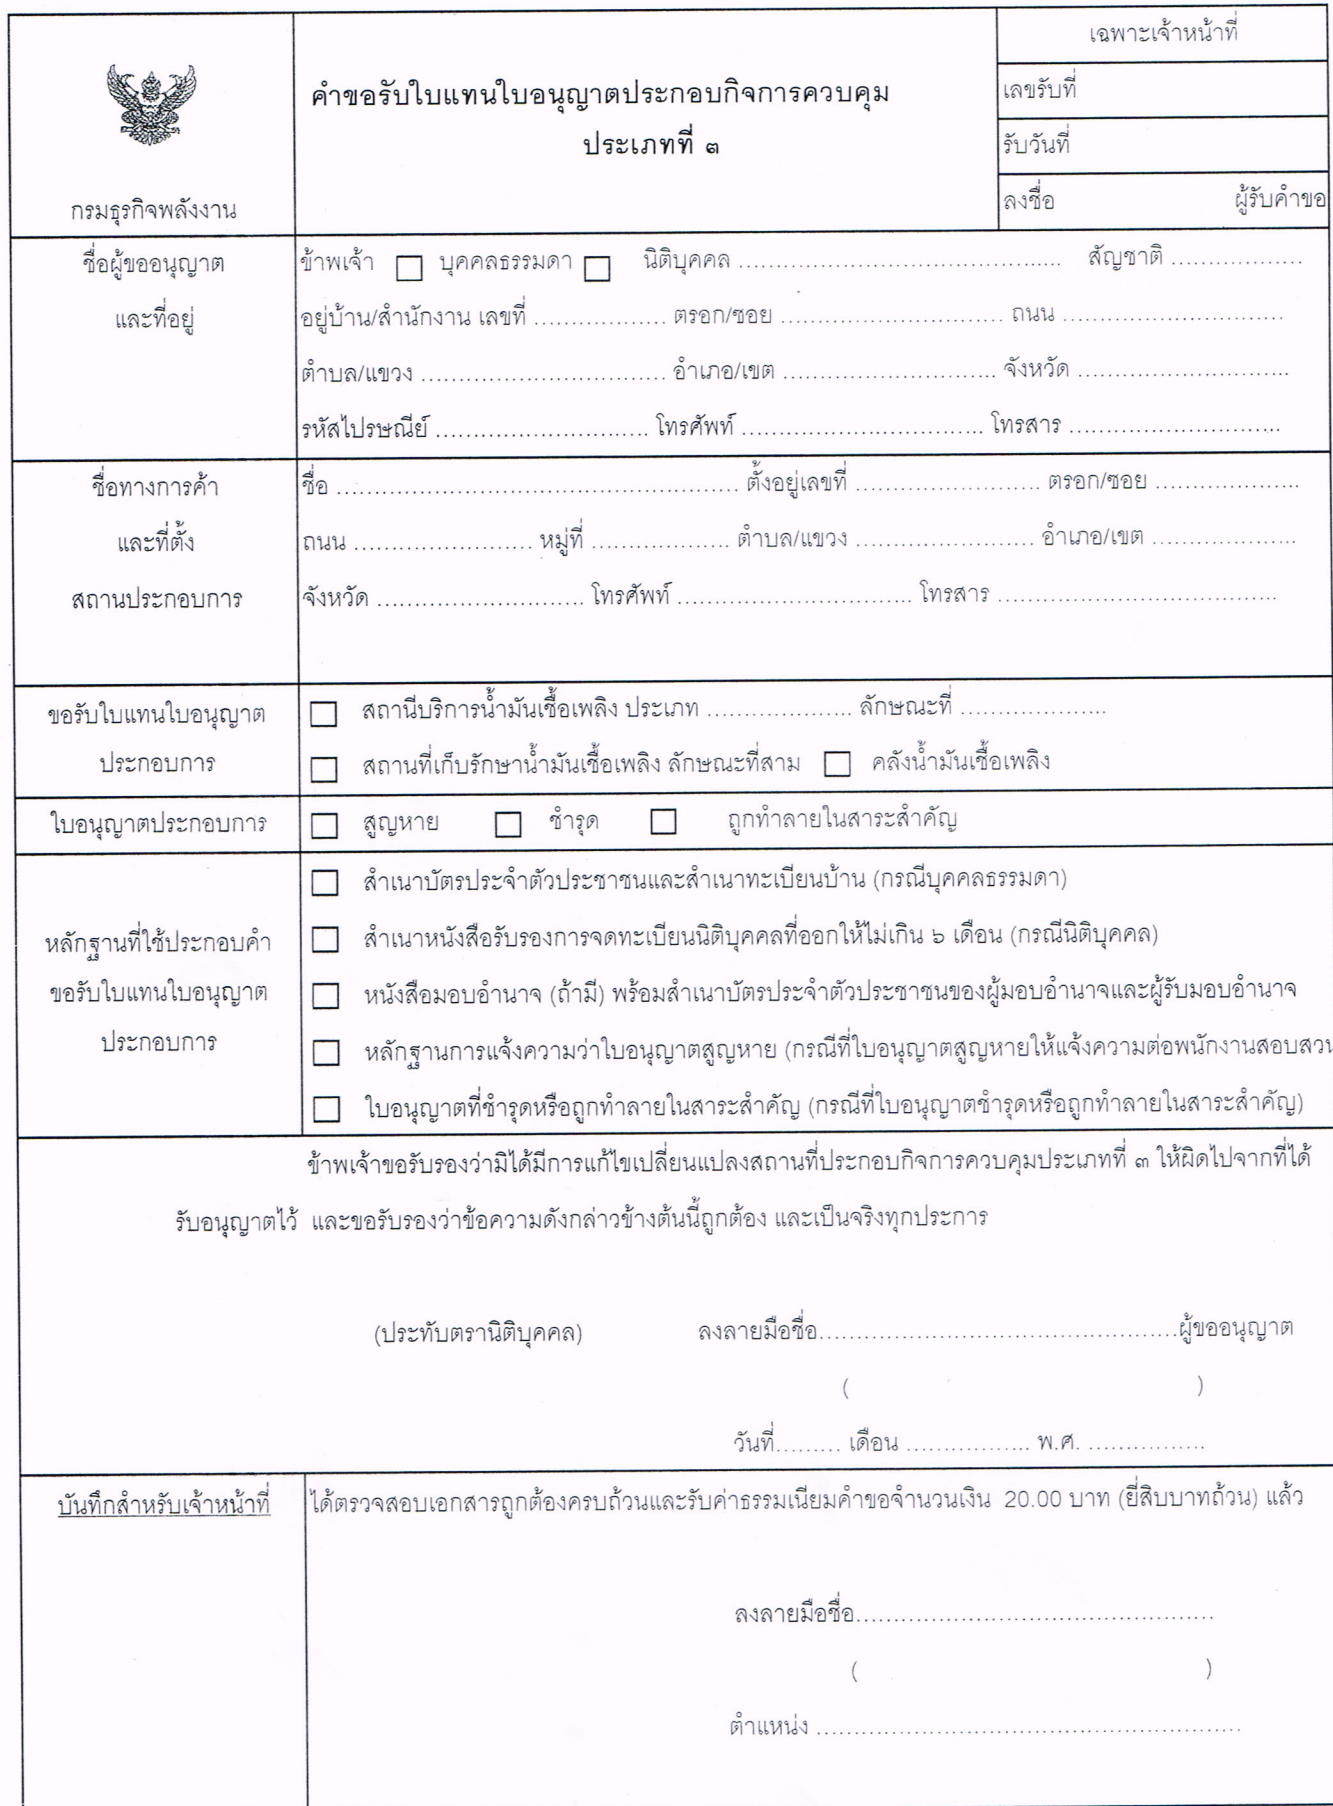 กรมธุรกิจพลังงาน
คำขอรับใบแทนใบอนุญาตประกอบกิจการควบคุม
ประเภทที่ ๓
เฉพาะเจ้าหน้าที่
เลขรับที่
รับวันที่
ลงชื่อ ผู้รับคำขอ
ชื่อผู้ขออนุญาต
และที่อยู่
ข้าพเจ้า ☐ บุคคลธรรมดา ☐ นิติบุคคล .......................................... สัญชาติ ..................
อยู่บ้าน/สำนักงาน เลขที่ .................. ตรอก/ซอย .............................. ถนน ..............................
ตำบล/แขวง ................................. อำเภอ/เขต ............................. จังหวัด .............................
รหัสไปรษณีย์ ............................. โทรศัพท์ ................................. โทรสาร .............................
ชื่อทางการค้า
และที่ตั้ง
สถานประกอบการ
ชื่อ ....................................................... ตั้งอยู่เลขที่ ......................... ตรอก/ซอย ....................
ถนน ........................ หมู่ที่ ................... ตำบล/แขวง ........................ อำเภอ/เขต ....................
จังหวัด ............................ โทรศัพท์ ................................ โทรสาร ......................................
ขอรับใบแทนใบอนุญาต
ประกอบการ
☐ สถานีบริการน้ำมันเชื้อเพลิง ประเภท .................... ลักษณะที่ ....................
☐ สถานที่เก็บรักษาน้ำมันเชื้อเพลิง ลักษณะที่สาม ☐ คลังน้ำมันเชื้อเพลิง
ใบอนุญาตประกอบการ
☐ สูญหาย ☐ ชำรุด ☐ ถูกทำลายในสาระสำคัญ
หลักฐานที่ใช้ประกอบคำ
ขอรับใบแทนใบอนุญาต
ประกอบการ
☐ สำเนาบัตรประจำตัวประชาชนและสำเนาทะเบียนบ้าน (กรณีบุคคลธรรมดา)
☐ สำเนาหนังสือรับรองการจดทะเบียนนิติบุคคลที่ออกให้ไม่เกิน ๖ เดือน (กรณีนิติบุคคล)
☐ หนังสือมอบอำนาจ (ถ้ามี) พร้อมสำเนาบัตรประจำตัวประชาชนของผู้มอบอำนาจและผู้รับมอบอำนาจ
☐ หลักฐานการแจ้งความว่าใบอนุญาตสูญหาย (กรณีที่ใบอนุญาตสูญหายให้แจ้งความต่อพนักงานสอบสวน
☐ ใบอนุญาตที่ชำรุดหรือถูกทำลายในสาระสำคัญ (กรณีที่ใบอนุญาตชำรุดหรือถูกทำลายในสาระสำคัญ)
ข้าพเจ้าขอรับรองว่ามิได้มีการแก้ไขเปลี่ยนแปลงสถานที่ประกอบกิจการควบคุมประเภทที่ ๓ ให้ผิดไปจากที่ได้
รับอนุญาตไว้ และขอรับรองว่าข้อความดังกล่าวข้างต้นนี้ถูกต้อง และเป็นจริงทุกประการ
(ประทับตรานิติบุคคล) ลงลายมือชื่อ................................................ผู้ขออนุญาต
( )
วันที่......... เดือน ................. พ.ศ. ................
บันทึกสำหรับเจ้าหน้าที่
ได้ตรวจสอบเอกสารถูกต้องครบถ้วนและรับค่าธรรมเนียมคำขอจำนวนเงิน 20.00 บาท (ยี่สิบบาทถ้วน) แล้ว
ลงลายมือชื่อ................................................
( )
ตำแหน่ง .........................................................